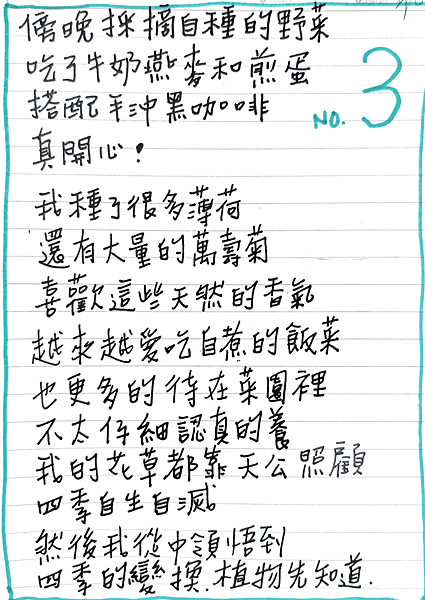 傍晚採摘自種的野菜
吃了牛奶燕麥和煎蛋
搭配手沖黑咖啡
真開心!
NO. 3
我種了很多薄荷
還有大量的萬壽菊
喜歡這些天然的香氣
越來越愛吃自煮的飯菜
也更多的待在菜園裡
不太仔細認真的養
我的花草都靠天公照顧
四季自生自滅
然後我從中領悟到
四季的變換.植物先知道.